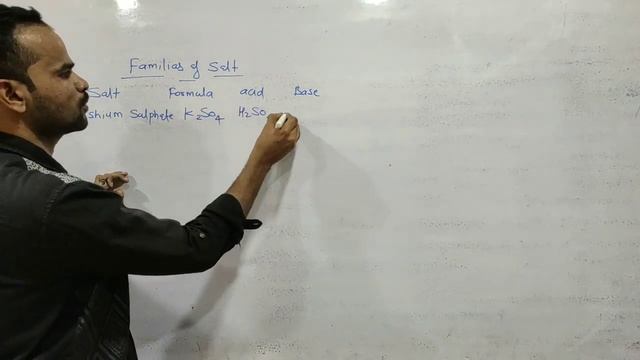 Familias of Salt
Salt Formula acid Base
shium Salphete K₂So₄ H₂So